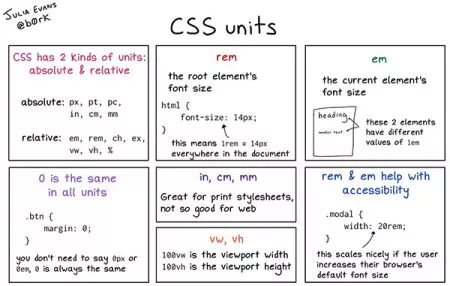 JULIA EVANS
@b0rk
CSS units
CSS has 2 kinds of units:
absolute & relative
absolute: px, pt, pc,
in, cm, mm
relative: em, rem, ch, ex,
vw, vh, %
rem
the root element's
font size
html {
font-size: 14px;
}
this means 1rem = 14px
everywhere in the document
em
the current element's
font size
heading
these 2 elements
have different
values of 1em
0 is the same
in all units
.btn {
margin: 0;
}
you don't need to say 0px or
0em, 0 is always the same
in, cm, mm
Great for print stylesheets,
not so good for web
vw, vh
100vw is the viewport width
100vh is the viewport height
rem & em help with
accessibility
.modal {
width: 20rem;
}
this scales nicely if the user
increases their browser's
default font size